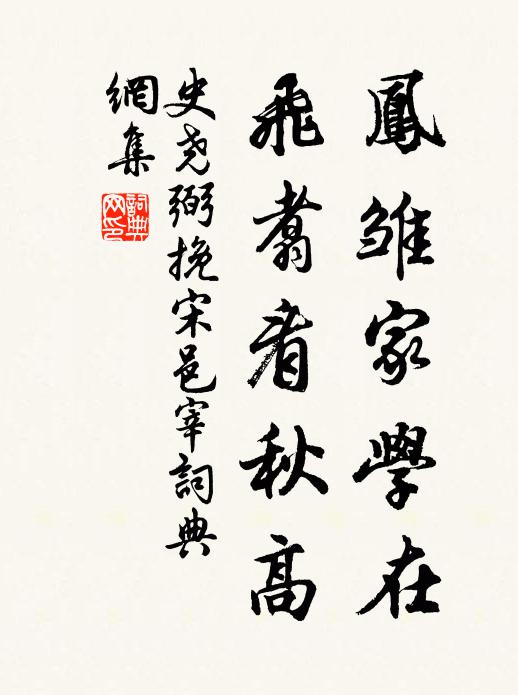 鳳雏家學在
飛翥看秋高
史尧弼挽宋邑宰詞典
網集
詞典
网印